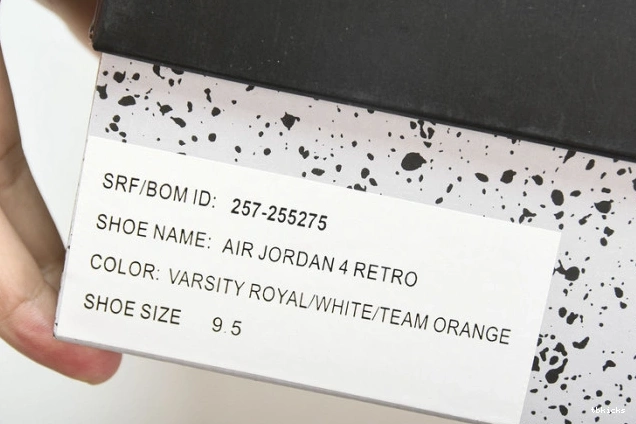 SRF/BOM ID: 257-255275
SHOE NAME: AIR JORDAN 4 RETRO
COLOR: VARSITY ROYAL/WHITE/TEAM ORANGE
SHOE SIZE 9.5
tbkicks